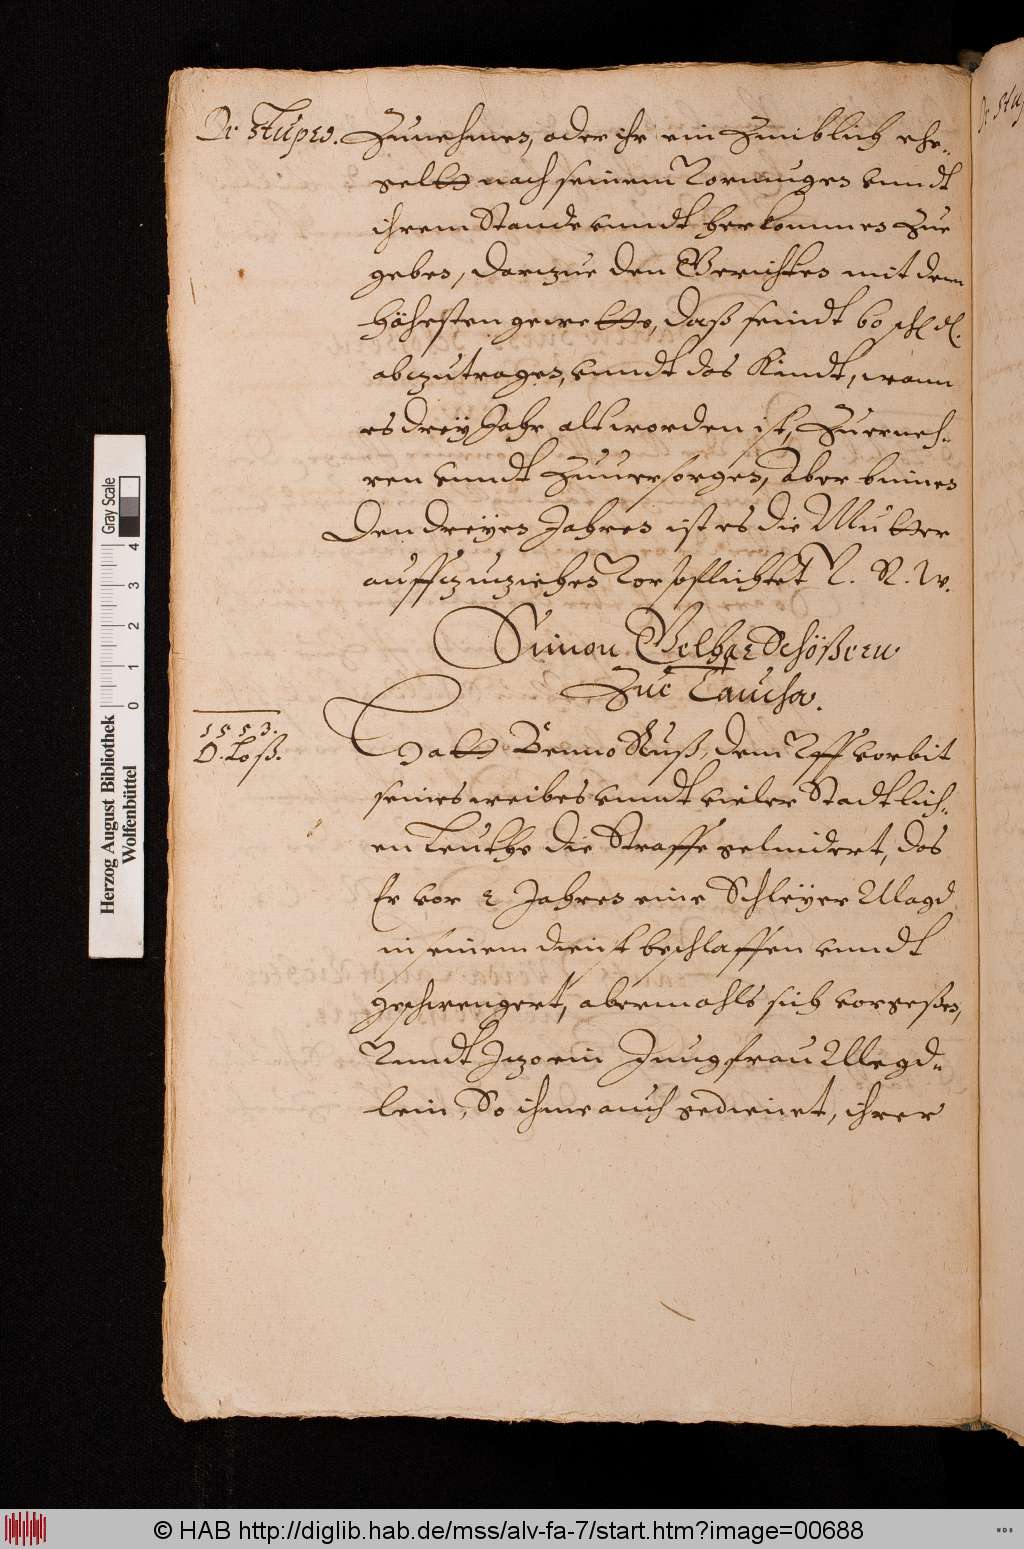 D. Stuprō. Zunehmen, oder ihr ein Zimblich ehe-
geltt nach seinem Vormugen vnndt
ihrem Stande vnndt herkommen Zue
geben, darzue den Gerichten mit dem
Höhesten gewette, daß seindt 60 ßl dl.
abzutragen, vnndt das Kindt, wann
es drey Jahr alt worden ist, Zuerneh-
ren vnndt Zuuersorgen, Aber binnen
Den dreyen Jahren ist es die Mutter
auffzuziehen Vorpflichtet V. R. W.
Simon Schößern
Zue Taucha.
1553.
D. Loß.
Hatt Benno Kuß, dem Vff vorbit
seines weibes vnndt vieler Stadtlich-
en Leuthe die Straffe gelindert, das
Er vor 2 Jahren eine Schleyer Magd
in seinem dienst beschlaffen vnndt
geschwengert, abermahls sich vorgeßen,
Vnndt Jzo ein Jungfrau Megd-
lein, So ihme auch gedienet, ihrer
Herzog August Bibliothek
Wolfenbüttel
Gray Scale
0 1 2 3 4
© HAB http://diglib.hab.de/mss/alv-fa-7/start.htm?image=00688